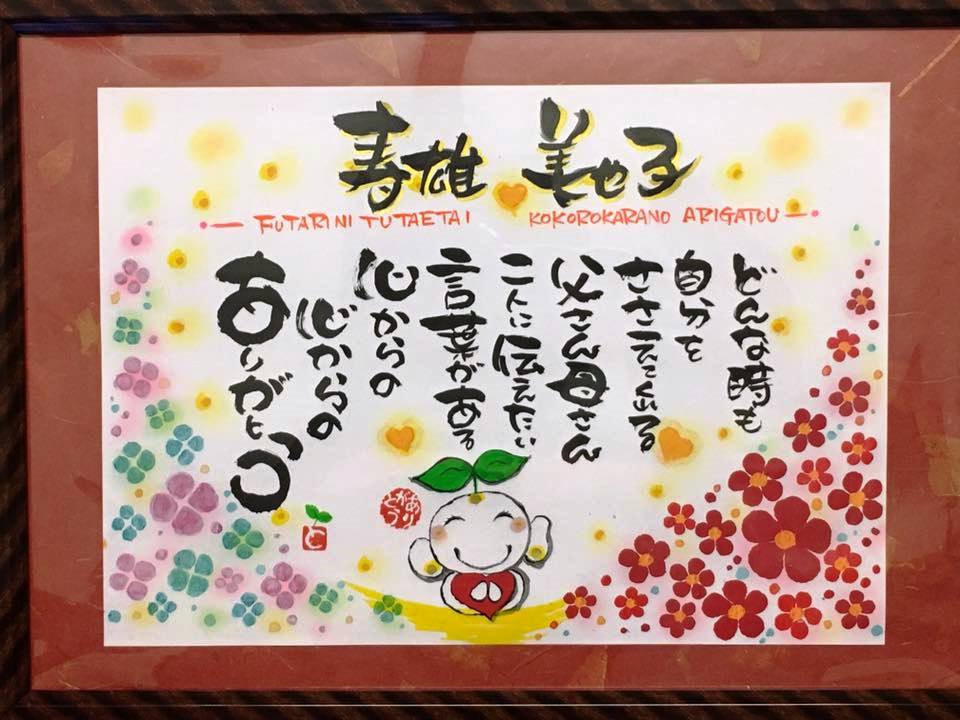 寿雄 美也子
FUTARINI TUTAETAI KOKOROKARANO ARIGATOU
どんな時も
自分を
ささえてくれる
父さん母さん
二人に伝えたい
言葉がある
心からの
心からの
ありがとう
ありがとう
と